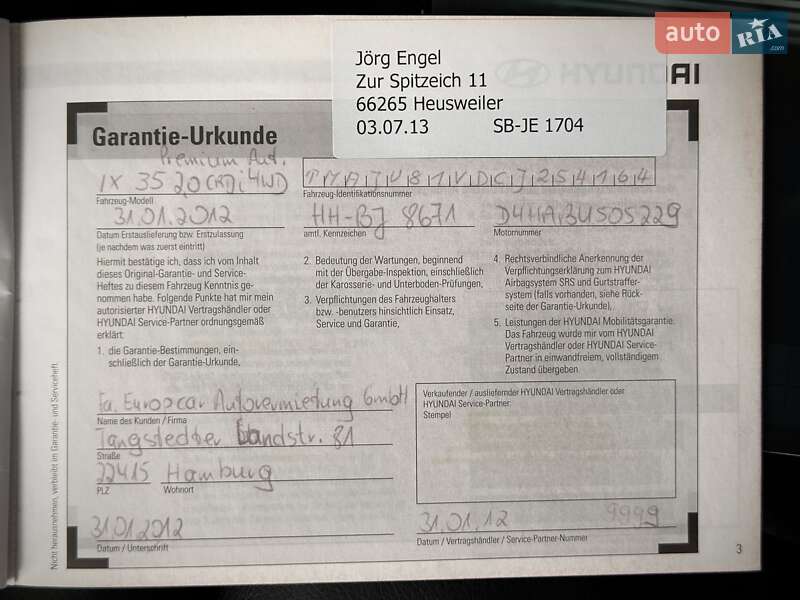 auto RIA.com
Jörg Engel
Zur Spitzeich 11
66265 Heusweiler
03.07.13 SB-JE 1704
HYUNDAI
Garantie-Urkunde
Premium Aut.
IX 35 2,0 CRDi 4WD
Fahrzeug-Modell
Fahrzeug-Identifikationsnummer
31.01.2012 HH-BJ 8671 D4HABU505229
Datum Erstauslieferung bzw. Erstzulassung
(je nachdem was zuerst eintritt)
amtl. Kennzeichen
Motornummer
Hiermit bestätige ich, dass ich vom Inhalt
dieses Original-Garantie- und Service-
Heftes zu diesem Fahrzeug Kenntnis ge-
nommen habe. Folgende Punkte hat mir mein
autorisierter HYUNDAI Vertragshändler oder
HYUNDAI Service-Partner ordnungsgemäß
erklärt:
1. die Garantie-Bestimmungen, ein-
schließlich der Garantie-Urkunde,
2. Bedeutung der Wartungen, beginnend
mit der Übergabe-Inspektion, einschließlich
der Karosserie- und Unterboden-Prüfungen,
3. Verpflichtungen des Fahrzeughalters
bzw. -benutzers hinsichtlich Einsatz,
Service und Garantie,
4. Rechtsverbindliche Anerkennung der
Verpflichtungserklärung zum HYUNDAI
Airbagsystem SRS und Gurtstraffer-
system (falls vorhanden, siehe Rück-
seite der Garantie-Urkunde),
5. Leistungen der HYUNDAI Mobilitätsgarantie.
Das Fahrzeug wurde mir vom HYUNDAI
Vertragshändler oder HYUNDAI Service-
Partner in einwandfreiem, vollständigem
Zustand übergeben.
Fa. Europcar Autovermietung GmbH
Name des Kunden / Firma
Tangstedter Landstr. 81
Straße
22415 Hamburg
PLZ Wohnort
31.01.2012
Datum / Unterschrift
Verkaufender / ausliefernder HYUNDAI Vertragshändler oder
HYUNDAI Service-Partner:
Stempel
31.01.12 9999
Datum / Vertragshändler / Service-Partner-Nummer
Nicht herausnehmen, verbleibt im Garantie- und Serviceheft.
3